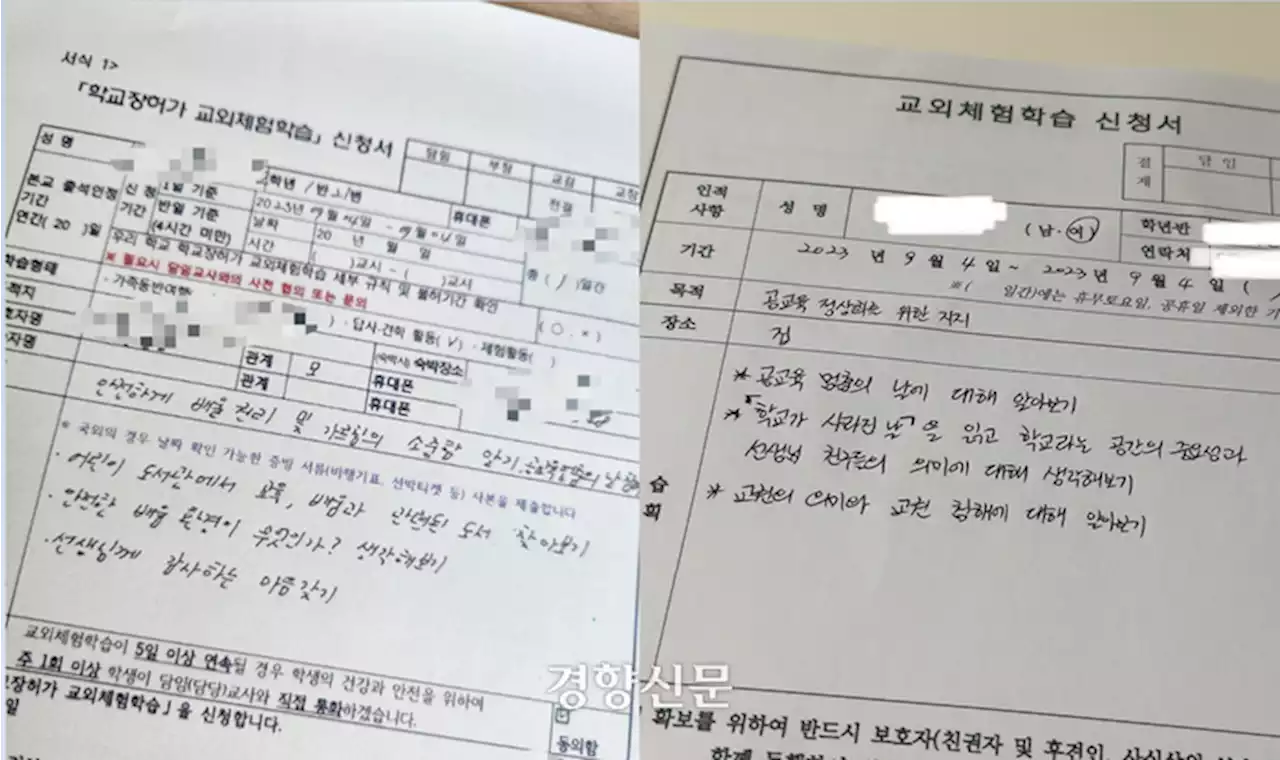 서식 1>
「학교장허가 교외체험학습」 신청서
담임
부장
교감
교장
전결
성 명
학년 / 반 2 / 번
휴대폰
본교 출석인정
기간
연간( 20 )일
신 청
기간
1일 기준
2023년 09월 04일 - 09월 04일
반일 기준
(4시간 미만)
날짜
20 년 월 일
시간
( )교시 - ( )교시
총 ( / )일간
우리 학교 학교장허가 교외체험학습 세부 규칙 및 불허기간 확인
※ 필요시 담임교사와의 사전 협의 또는 문의
( ○ , × )
학습형태
· 가족동반여행
) · 답사·견학 활동( V ) · 체험활동( )
적지
호자명
자명
관계
모
관계
휴대폰
휴대폰
(숙박시) 숙박장소
안전하게 배울 권리 및 가르침의 소중함 알기
※ 국외의 경우 날짜 확인 가능한 증빙 서류(비행기표, 선박티켓 등) 사본을 제출합니다
· 어린이 도서관에서 교육, 배움과 관련된 도서 찾아보기
· 안전한 배움 환경이 무엇인가? 생각해보기
· 선생님께 감사하는 마음갖기
교외체험학습이 5일 이상 연속될 경우 학생의 건강과 안전을 위하여
주 1회 이상 학생이 담임(담당)교사와 직접 통화하겠습니다.
교장허가 교외체험학습」을 신청합니다.
일
동의함
교외체험학습 신청서
결
재
담 임
인적
사항
성 명
( 남 · 여 )
학년반
연락처
기간
2023 년 9 월 4 일 ~ 2023 년 9 월 4 일 (
※( 일간)에는 휴무토요일, 공휴일 제외한 기
목적
공교육 정상화를 위한 지지
장소
집
습
획
* 공교육 멈춤의 날에 대해 알아보기
* 「학교가 사라진 날」을 읽고 학교라는 공간의 중요성과
선생님 친구들의 의미에 대해 생각해보기
* 교권의 의미와 교권 침해에 대해 알아보기
확보를 위하여 반드시 보호자(친권자 및 후견인, 사실상의
함께 동행해야
경향신문